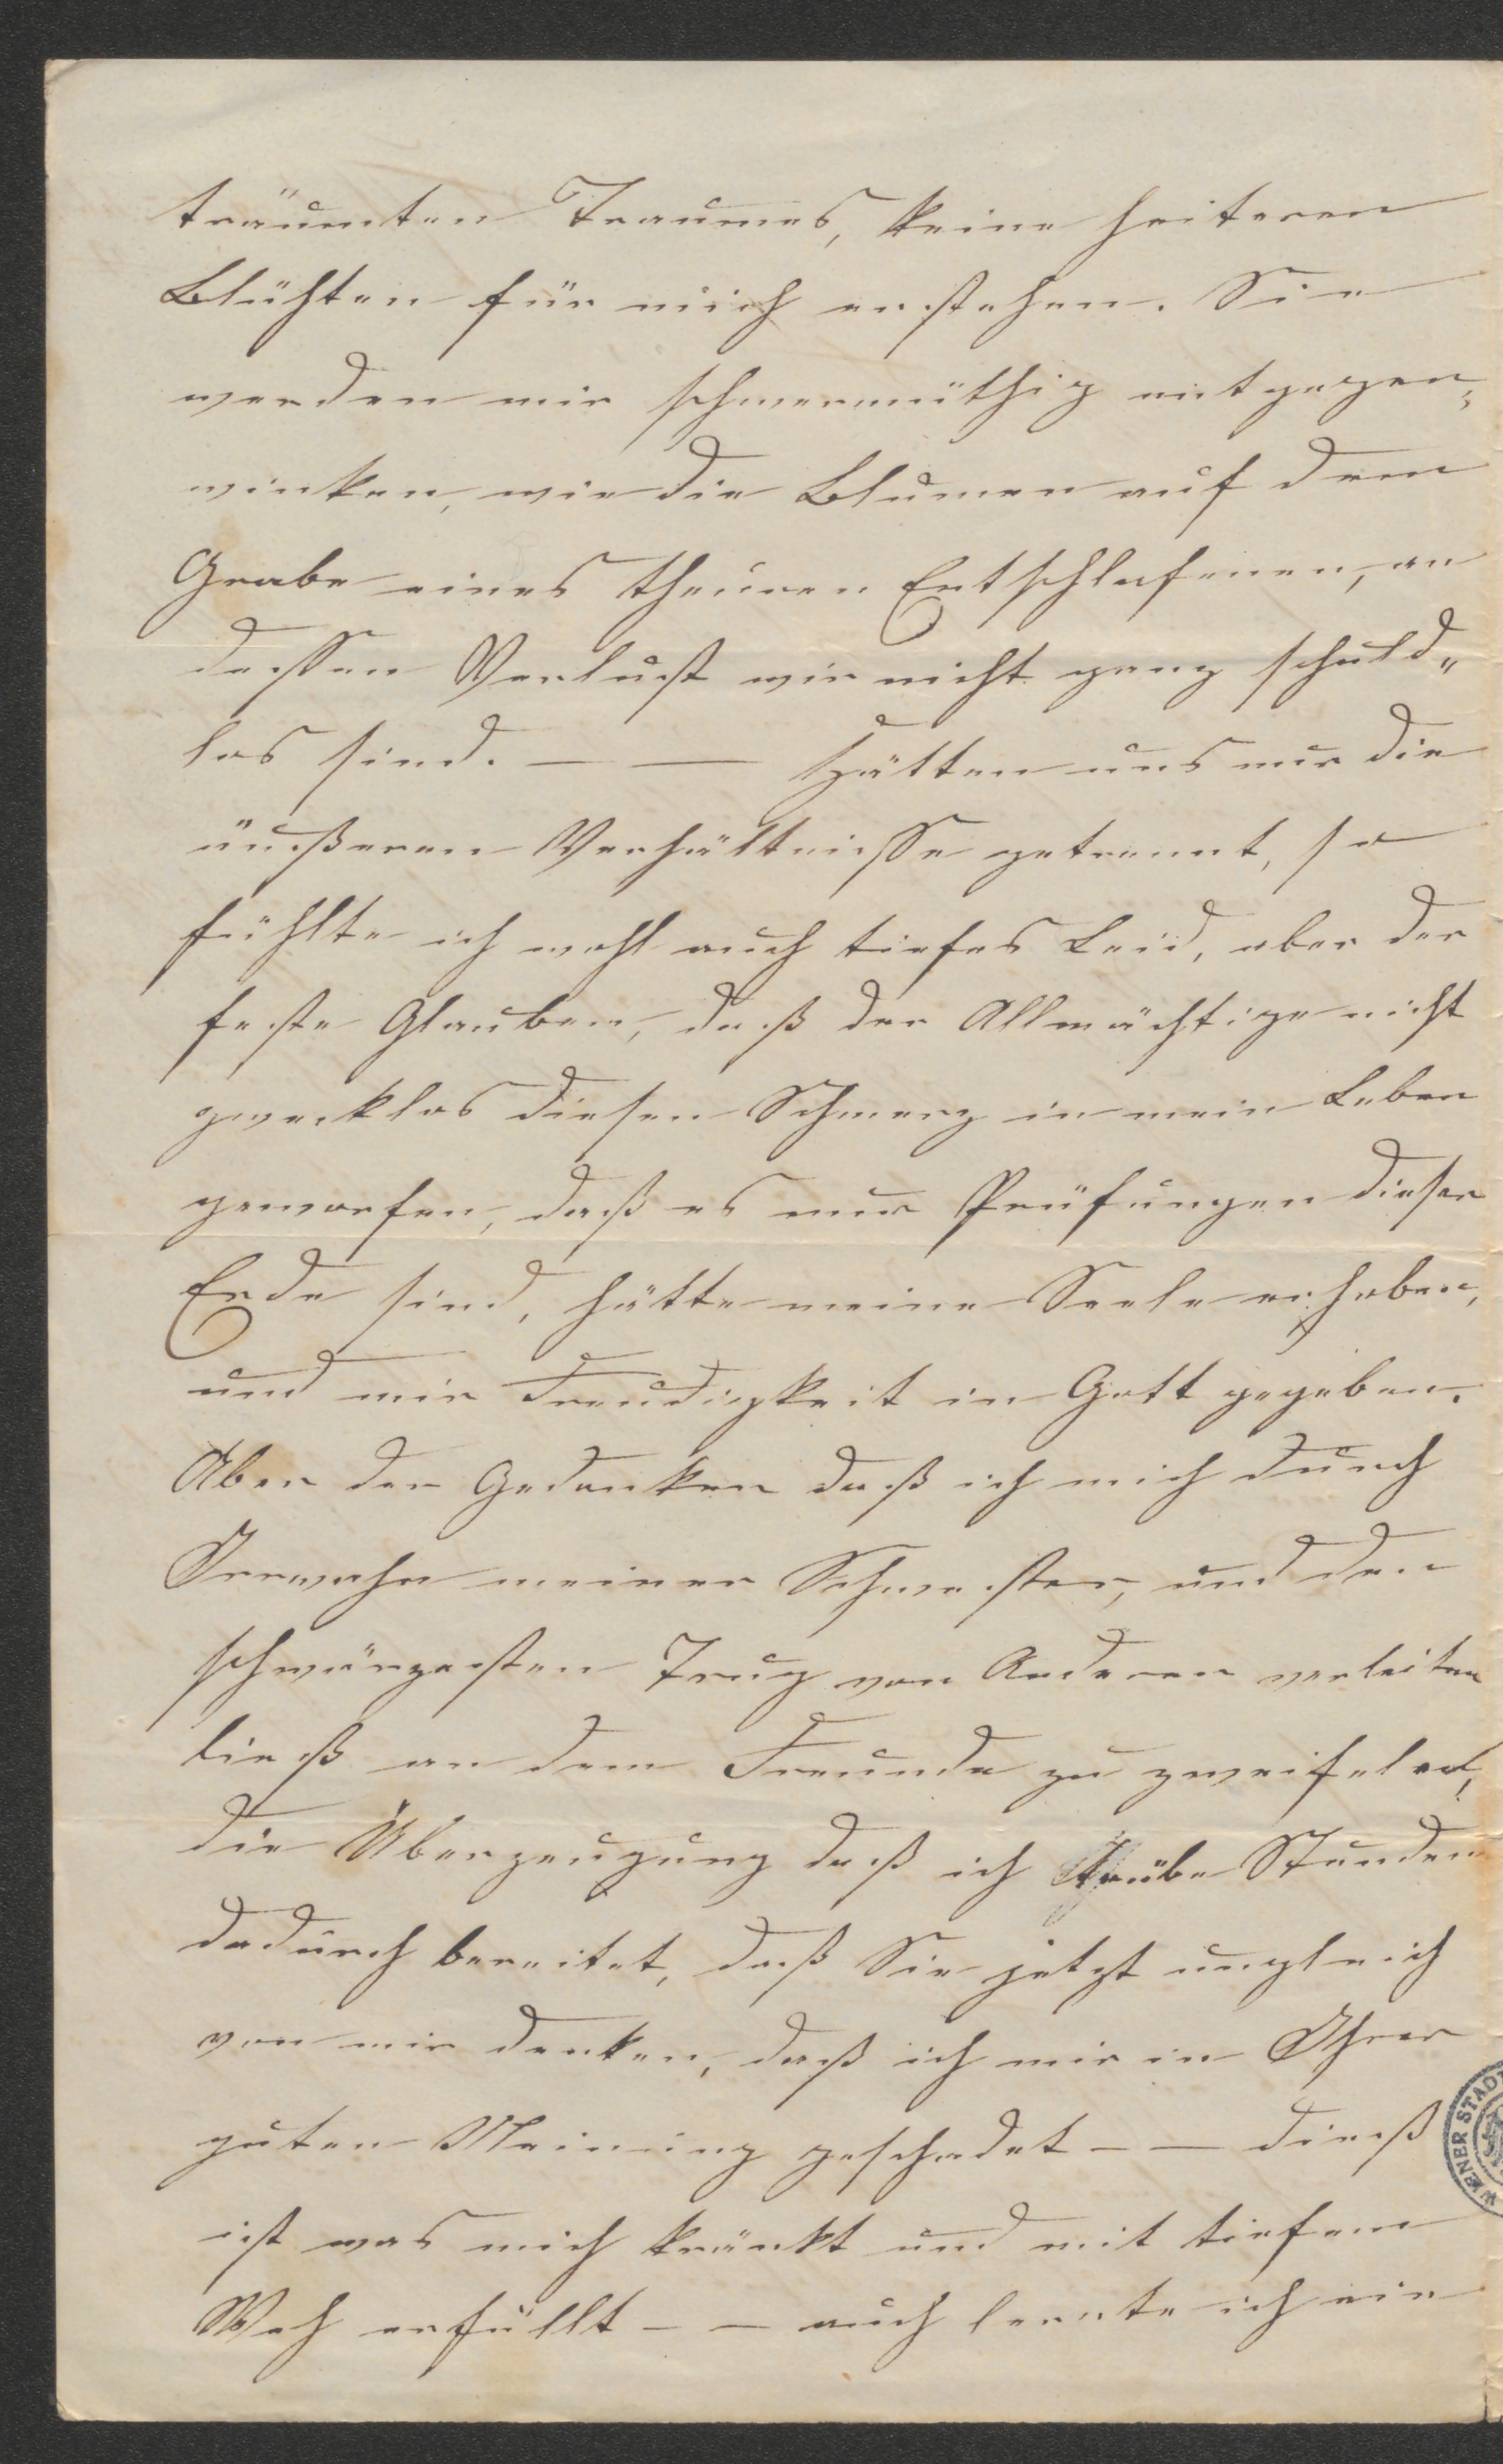 träumten Traumes, keine heiteren
Blühten für mich erstehen. Sie
werden mir schwermüthig entgegen,
winken, wie die Blumen auf dem
Grabe eines theuren Entschlafenen, an
dessen Verlust wir nicht ganz schuld„
los sind. — — Hätten uns nur die
äußeren Verhältnisse getrennt, so
fühlte ich wohl auch tiefes Leid, aber der
feste Glauben, daß der Allmächtige nicht
zwecklos diesen Schmerz in mein Leben
geworfen, daß es nur Prüfungen dieser
Erde sind, hätte meine Seele erhoben,
und mir Freudigkeit in Gott gegeben.
Aber der Gedanken daß ich mich durch
Irrwahn meiner Schwester, und den
schwärzesten Trug von Anderen verleiten
ließ an dem Freunde zu zweifeln,
die Überzeugung daß ich trübe Stunden
dadurch bereitet, daß Sie jetzt ungleich
von mir denken, daß ich mir in Ihrer
guten Meinung geschadet — — dieß
ist was mich kränkt und mit tiefem
Weh erfüllt — — auch lernte ich ein
WIENER STAD